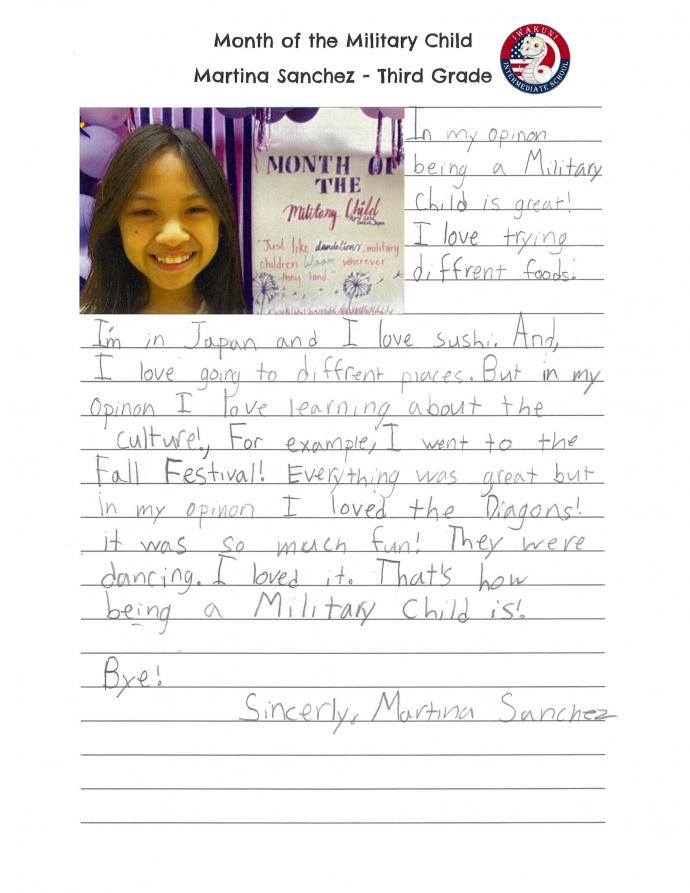 Month of the Military Child
Martina Sanchez - Third Grade
IWAKUNI
INTERMEDIATE SCHOOL
MONTH OF
THE
Military Child
"Just like dandelions, military
children bloom wherever
they land."
In my opinon
being a Military
Child is great!
I love trying
diffrent foods!
I'm in Japan and I love sushi. And,
I love going to diffrent places. But in my
opinon I love learning about the
culture!, For example, I went to the
Fall Festival! Everything was great but
in my opinon I loved the Dragons!
it was so much fun! They were
dancing. I loved it. That's how
being a Military Child is!
Bye!
Sincerly, Martina Sanchez